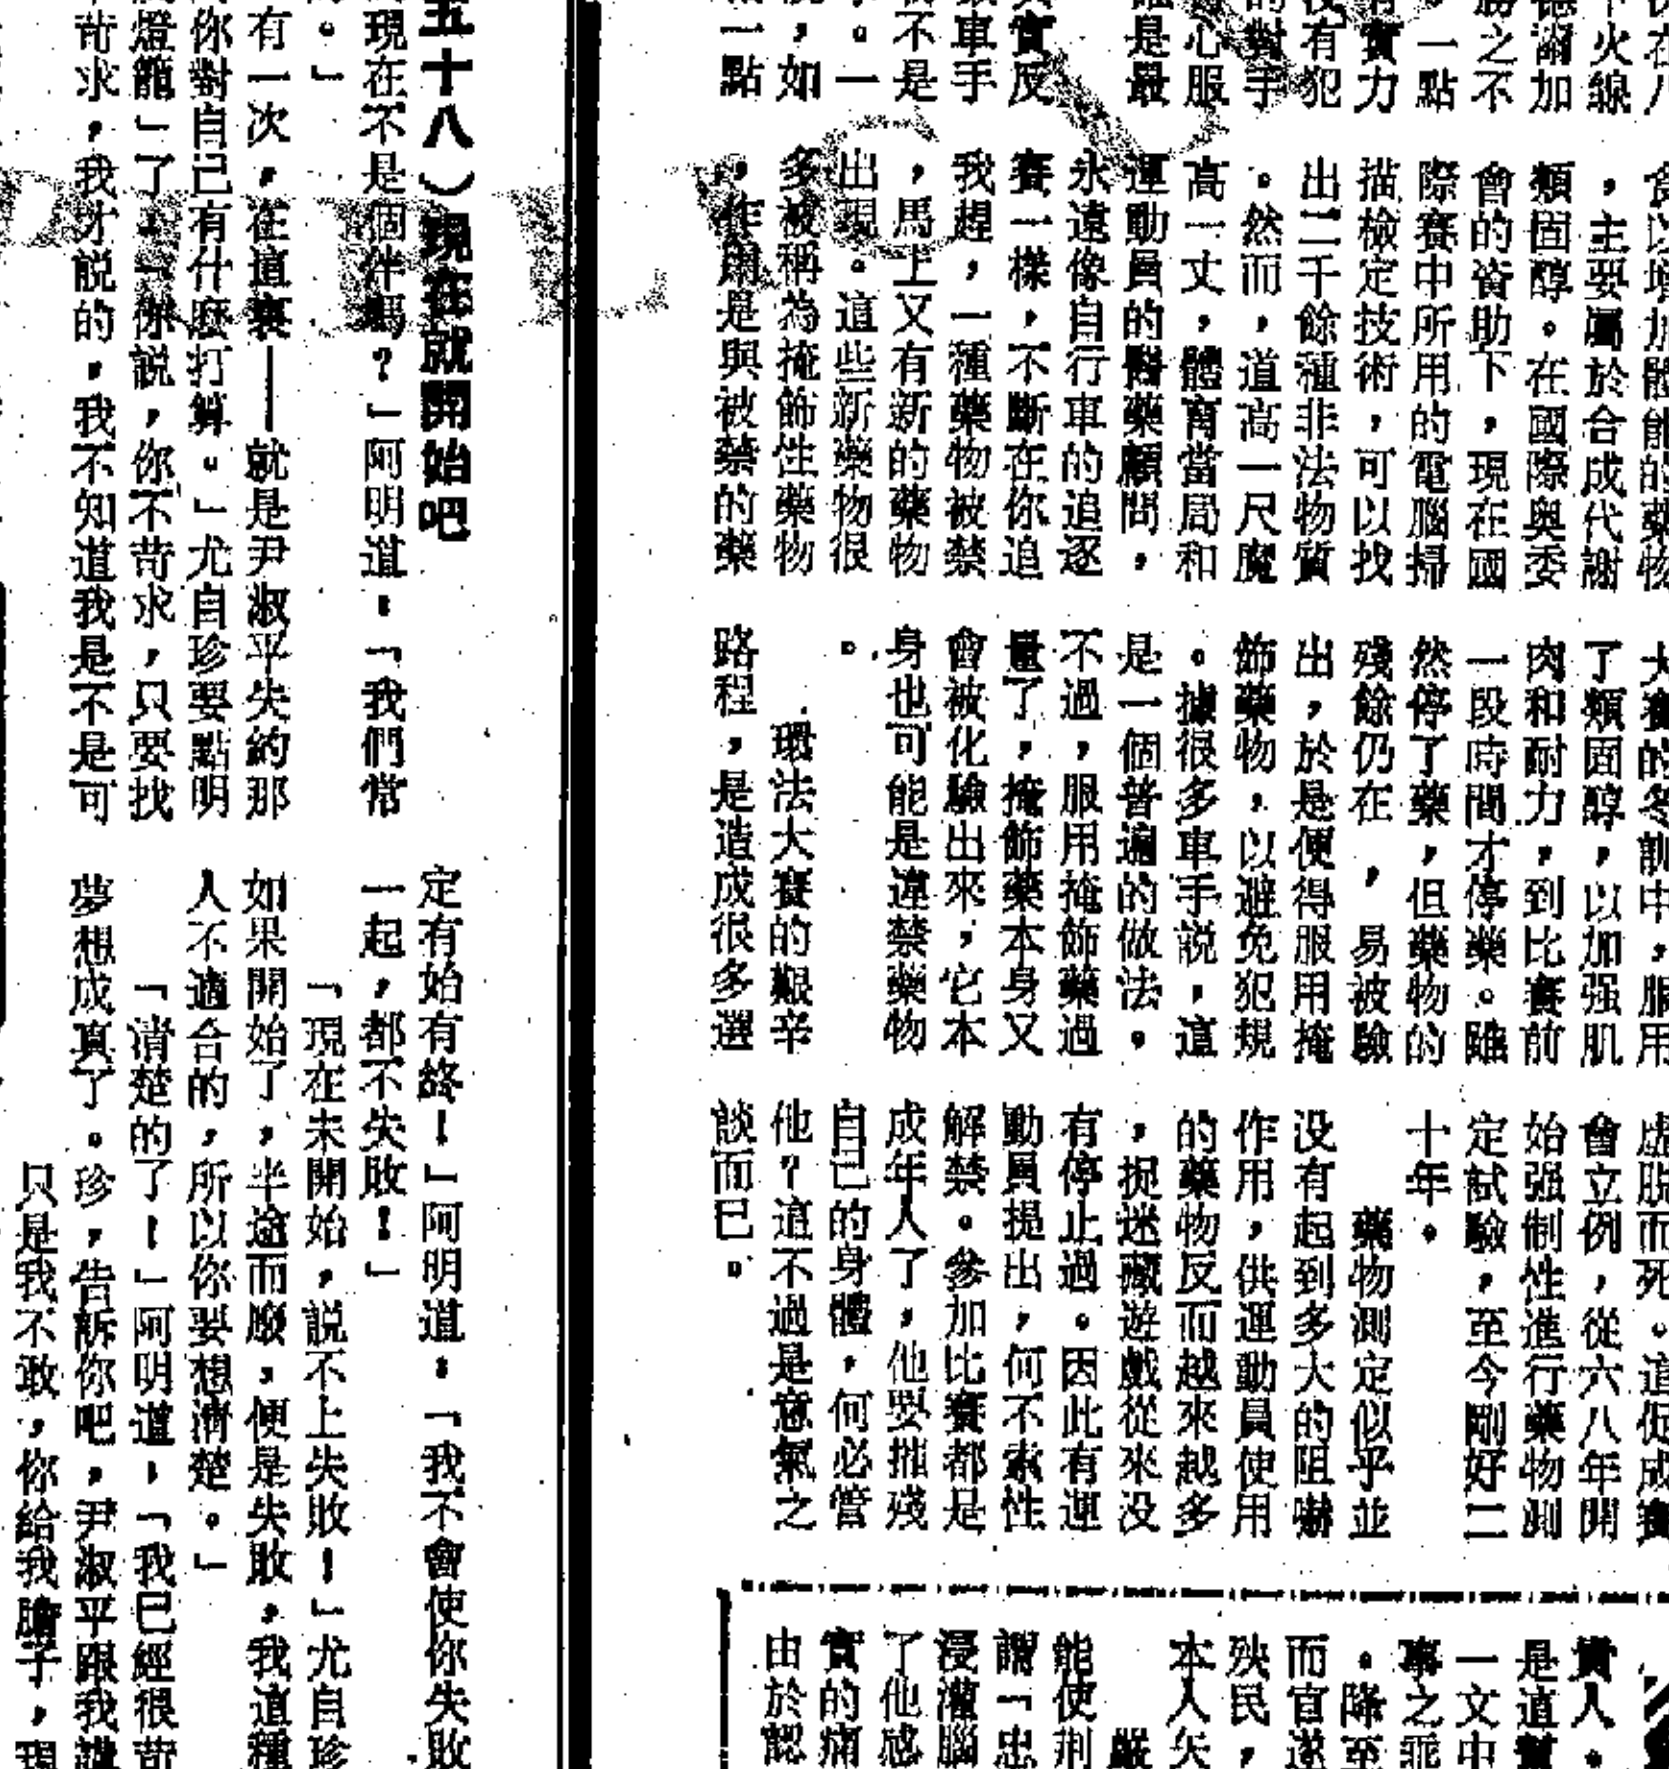 在八
下火線
德爾加
勝之不
。一點
有實力
沒有犯
的對手
心服
誰是最
實反
車手
不是
。一
，如
一點
食以增加體能的藥物
，主要屬於合成代謝
類固醇。在國際奧委
會的資助下，現在國
際賽中所用的電腦掃
描檢定技術，可以找
出二千餘種非法物質
。然而，道高一尺魔
高一丈，體育當局和
運動員的醫藥顧問，
永遠像自行車的追逐
賽一樣，不斷在你追
我趕，一種藥物被禁
，馬上又有新的藥物
出現。這些新藥物很
多被稱為掩飾性藥物
，作用是與被禁的藥
大賽的冬訓中，服用
了類固醇，以加强肌
肉和耐力，到比賽前
一段時間才停藥。雖
然停了藥，但藥物的
殘餘仍在，易被驗
出，於是便得服用掩
飾藥物，以避免犯規
。據很多車手説，這
是一個普遍的做法。
不過，服用掩飾藥過
量了，掩飾藥本身又
會被化驗出來，它本
身也可能是違禁藥物
。
環法大賽的艱辛
路程，是造成很多選
虛脱而死。這促成賽
會立例，從六八年開
始强制性進行藥物測
定試驗，至今剛好二
十年。
藥物測定似乎並
没有起到多大的阻嚇
作用，供運動員使用
的藥物反而越來越多
，捉迷藏遊戲從來没
有停止過。因此有運
動員提出，何不索性
解禁。參加比賽都是
成年人了，他要摧殘
自己的身體，何必管
他？這不過是意氣之
談而已。
實人。
是道
一文中
事之乖
。降至
而官逐
殃民，
本人矢
嚴
能使刑
謂「忠
浸灌腦
了他感
實的痛
由於認
五十八）現在就開始吧
現在不是個伴嗎？」阿明道：「我們常
。」
有一次，在這裏——就是尹淑平失約那
你對自己有什麼打算。」尤自珍要點明
燈籠」了：「你説，你不苛求，只要找
苛求，我才説的，我不知道我是不是可
定有始有終！」阿明道：「我不會使你失敗
一起，都不失敗！」
「現在未開始，説不上失敗！」尤自珍
如果開始了，半途而廢，便是失敗，我這種
人不適合的，所以你要想清楚。」
「清楚的了！」阿明道，「我已經很苛
夢想成真了。珍，告訴你吧，尹淑平跟我講
只是我不敢，你給我膽子，現